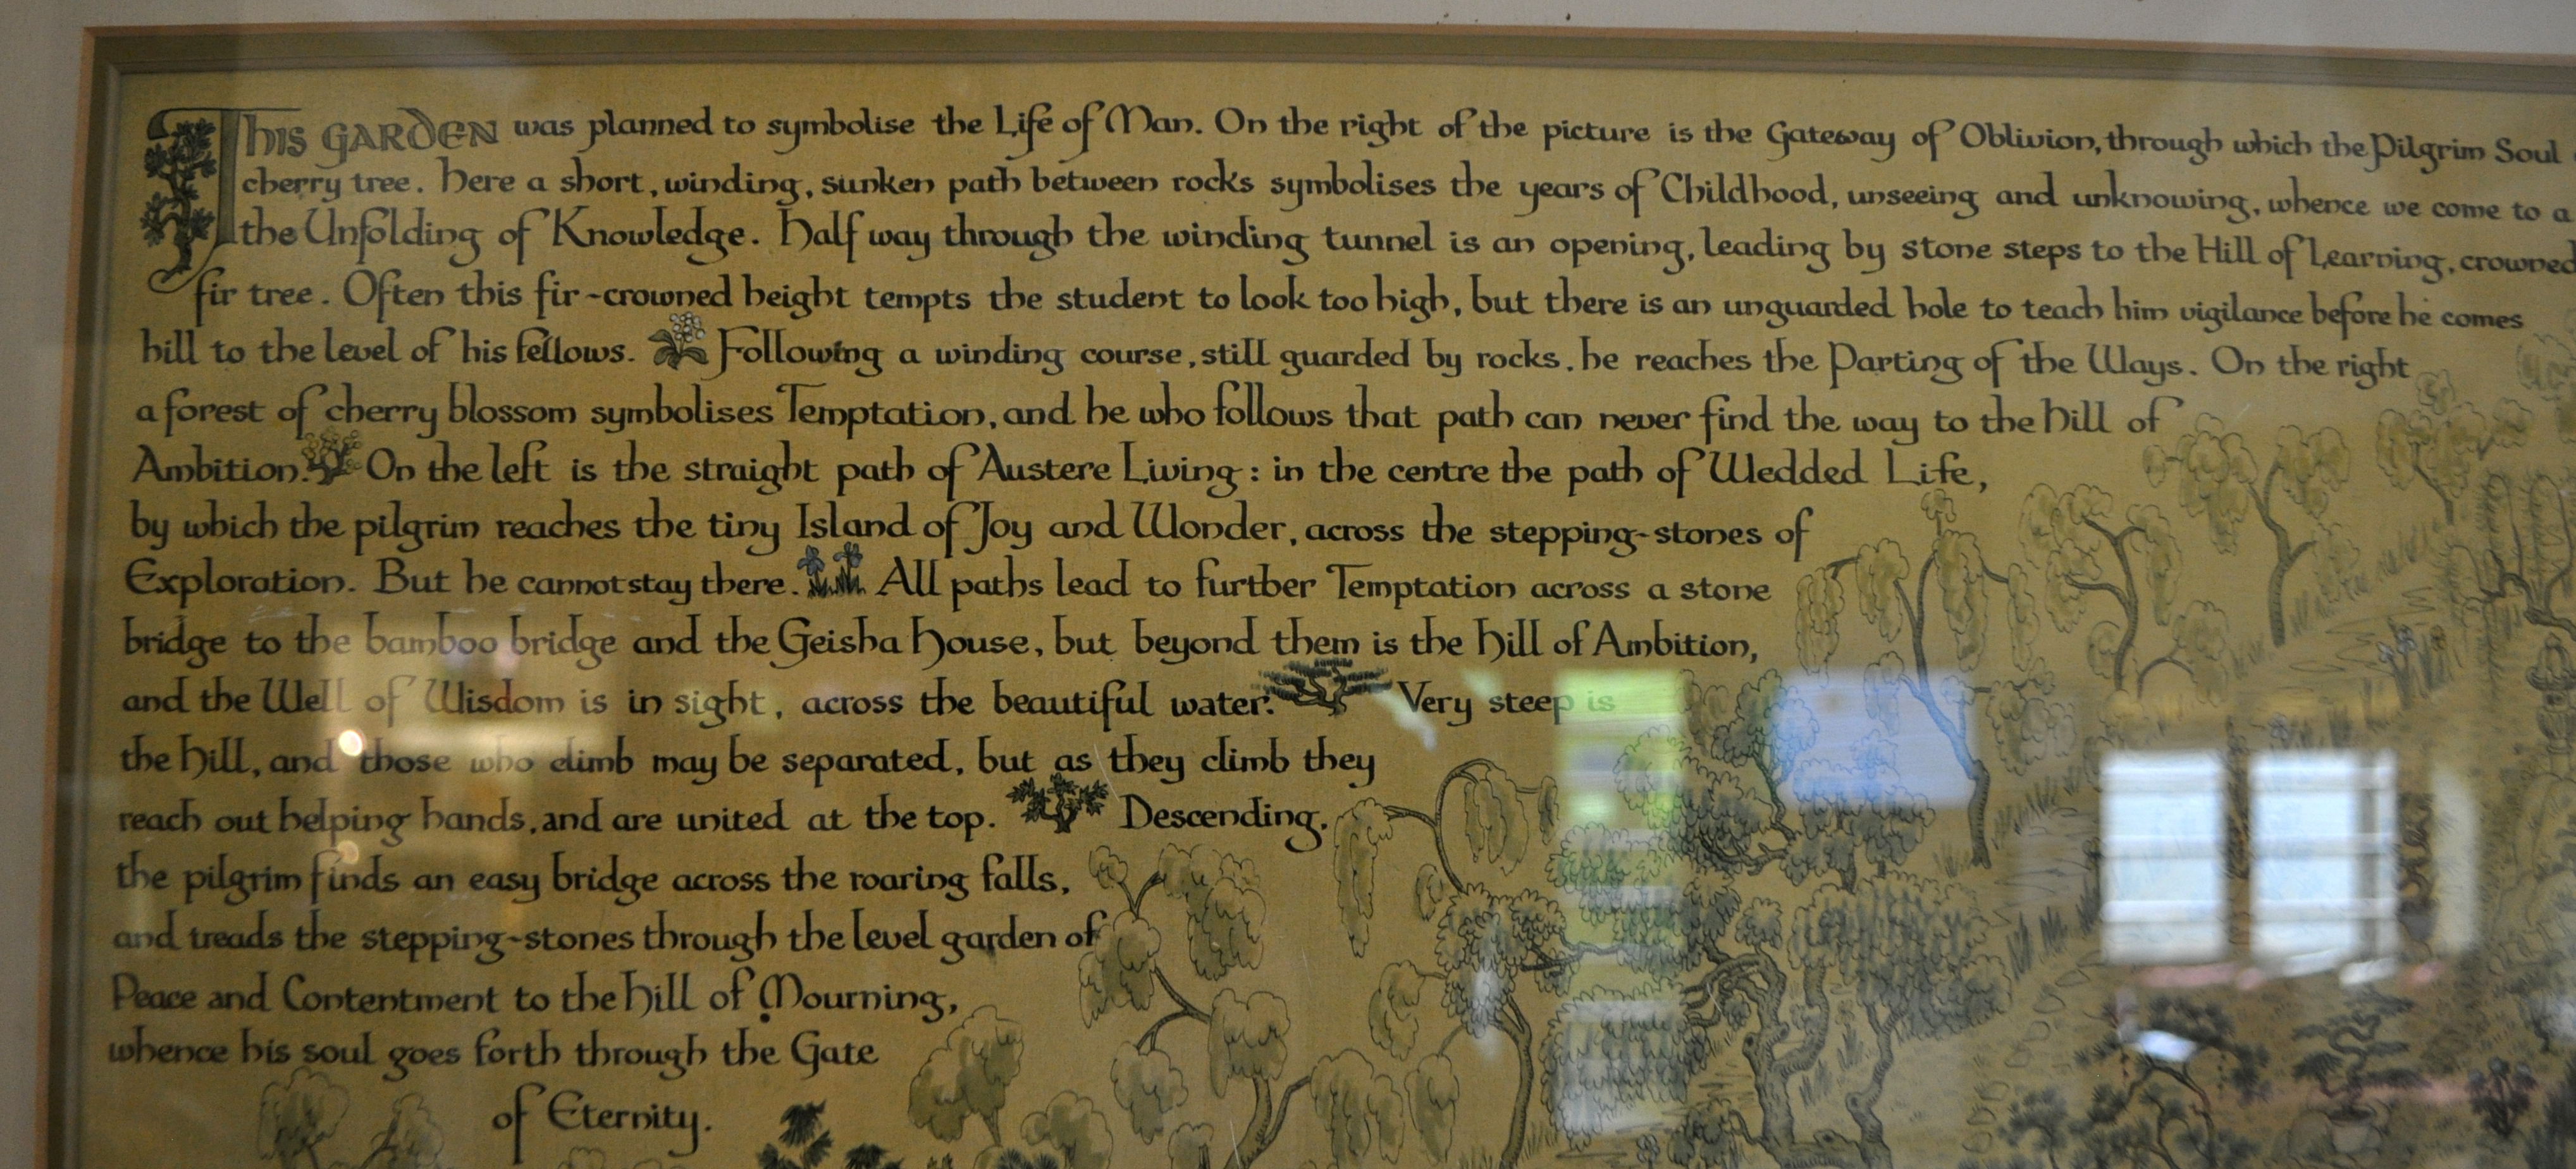 This GARDEN was planned to symbolise the Life of Man. On the right of the picture is the Gateway of Oblivion, through which the Pilgrim Soul
cherry tree. Here a short, winding, sunken path between rocks symbolises the years of Childhood, unseeing and unknowing, whence we come to a
the Unfolding of Knowledge. Half way through the winding tunnel is an opening, leading by stone steps to the Hill of Learning, crowned
fir tree. Often this fir-crowned height tempts the student to look too high, but there is an unguarded hole to teach him vigilance before he comes
hill to the level of his fellows. Following a winding course, still guarded by rocks, he reaches the Parting of the Ways. On the right
a forest of cherry blossom symbolises Temptation, and he who follows that path can never find the way to the Hill of
Ambition. On the left is the straight path of Austere Living: in the centre the path of Wedded Life,
by which the pilgrim reaches the tiny Island of Joy and Wonder, across the stepping-stones of
Exploration. But he cannot stay there. All paths lead to further Temptation across a stone
bridge to the bamboo bridge and the Geisha House, but beyond them is the Hill of Ambition,
and the Well of Wisdom is in sight, across the beautiful water. Very steep is
the Hill, and those who climb may be separated, but as they climb they
reach out helping hands, and are united at the top. Descending,
the pilgrim finds an easy bridge across the roaring falls,
and treads the stepping-stones through the level garden of
Peace and Contentment to the Hill of Mourning,
whence his soul goes forth through the Gate
of Eternity.